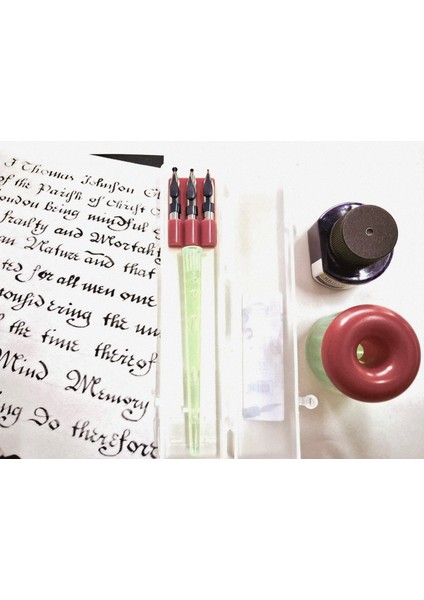 I Thomas Johnson Ci
of the Parish of Christ C
ondon being mindful o
Frailty and Mortality
an Nature and that
ted for all men one
onsidering the un
f the time thereof
Mind Memory
ng Do therefore